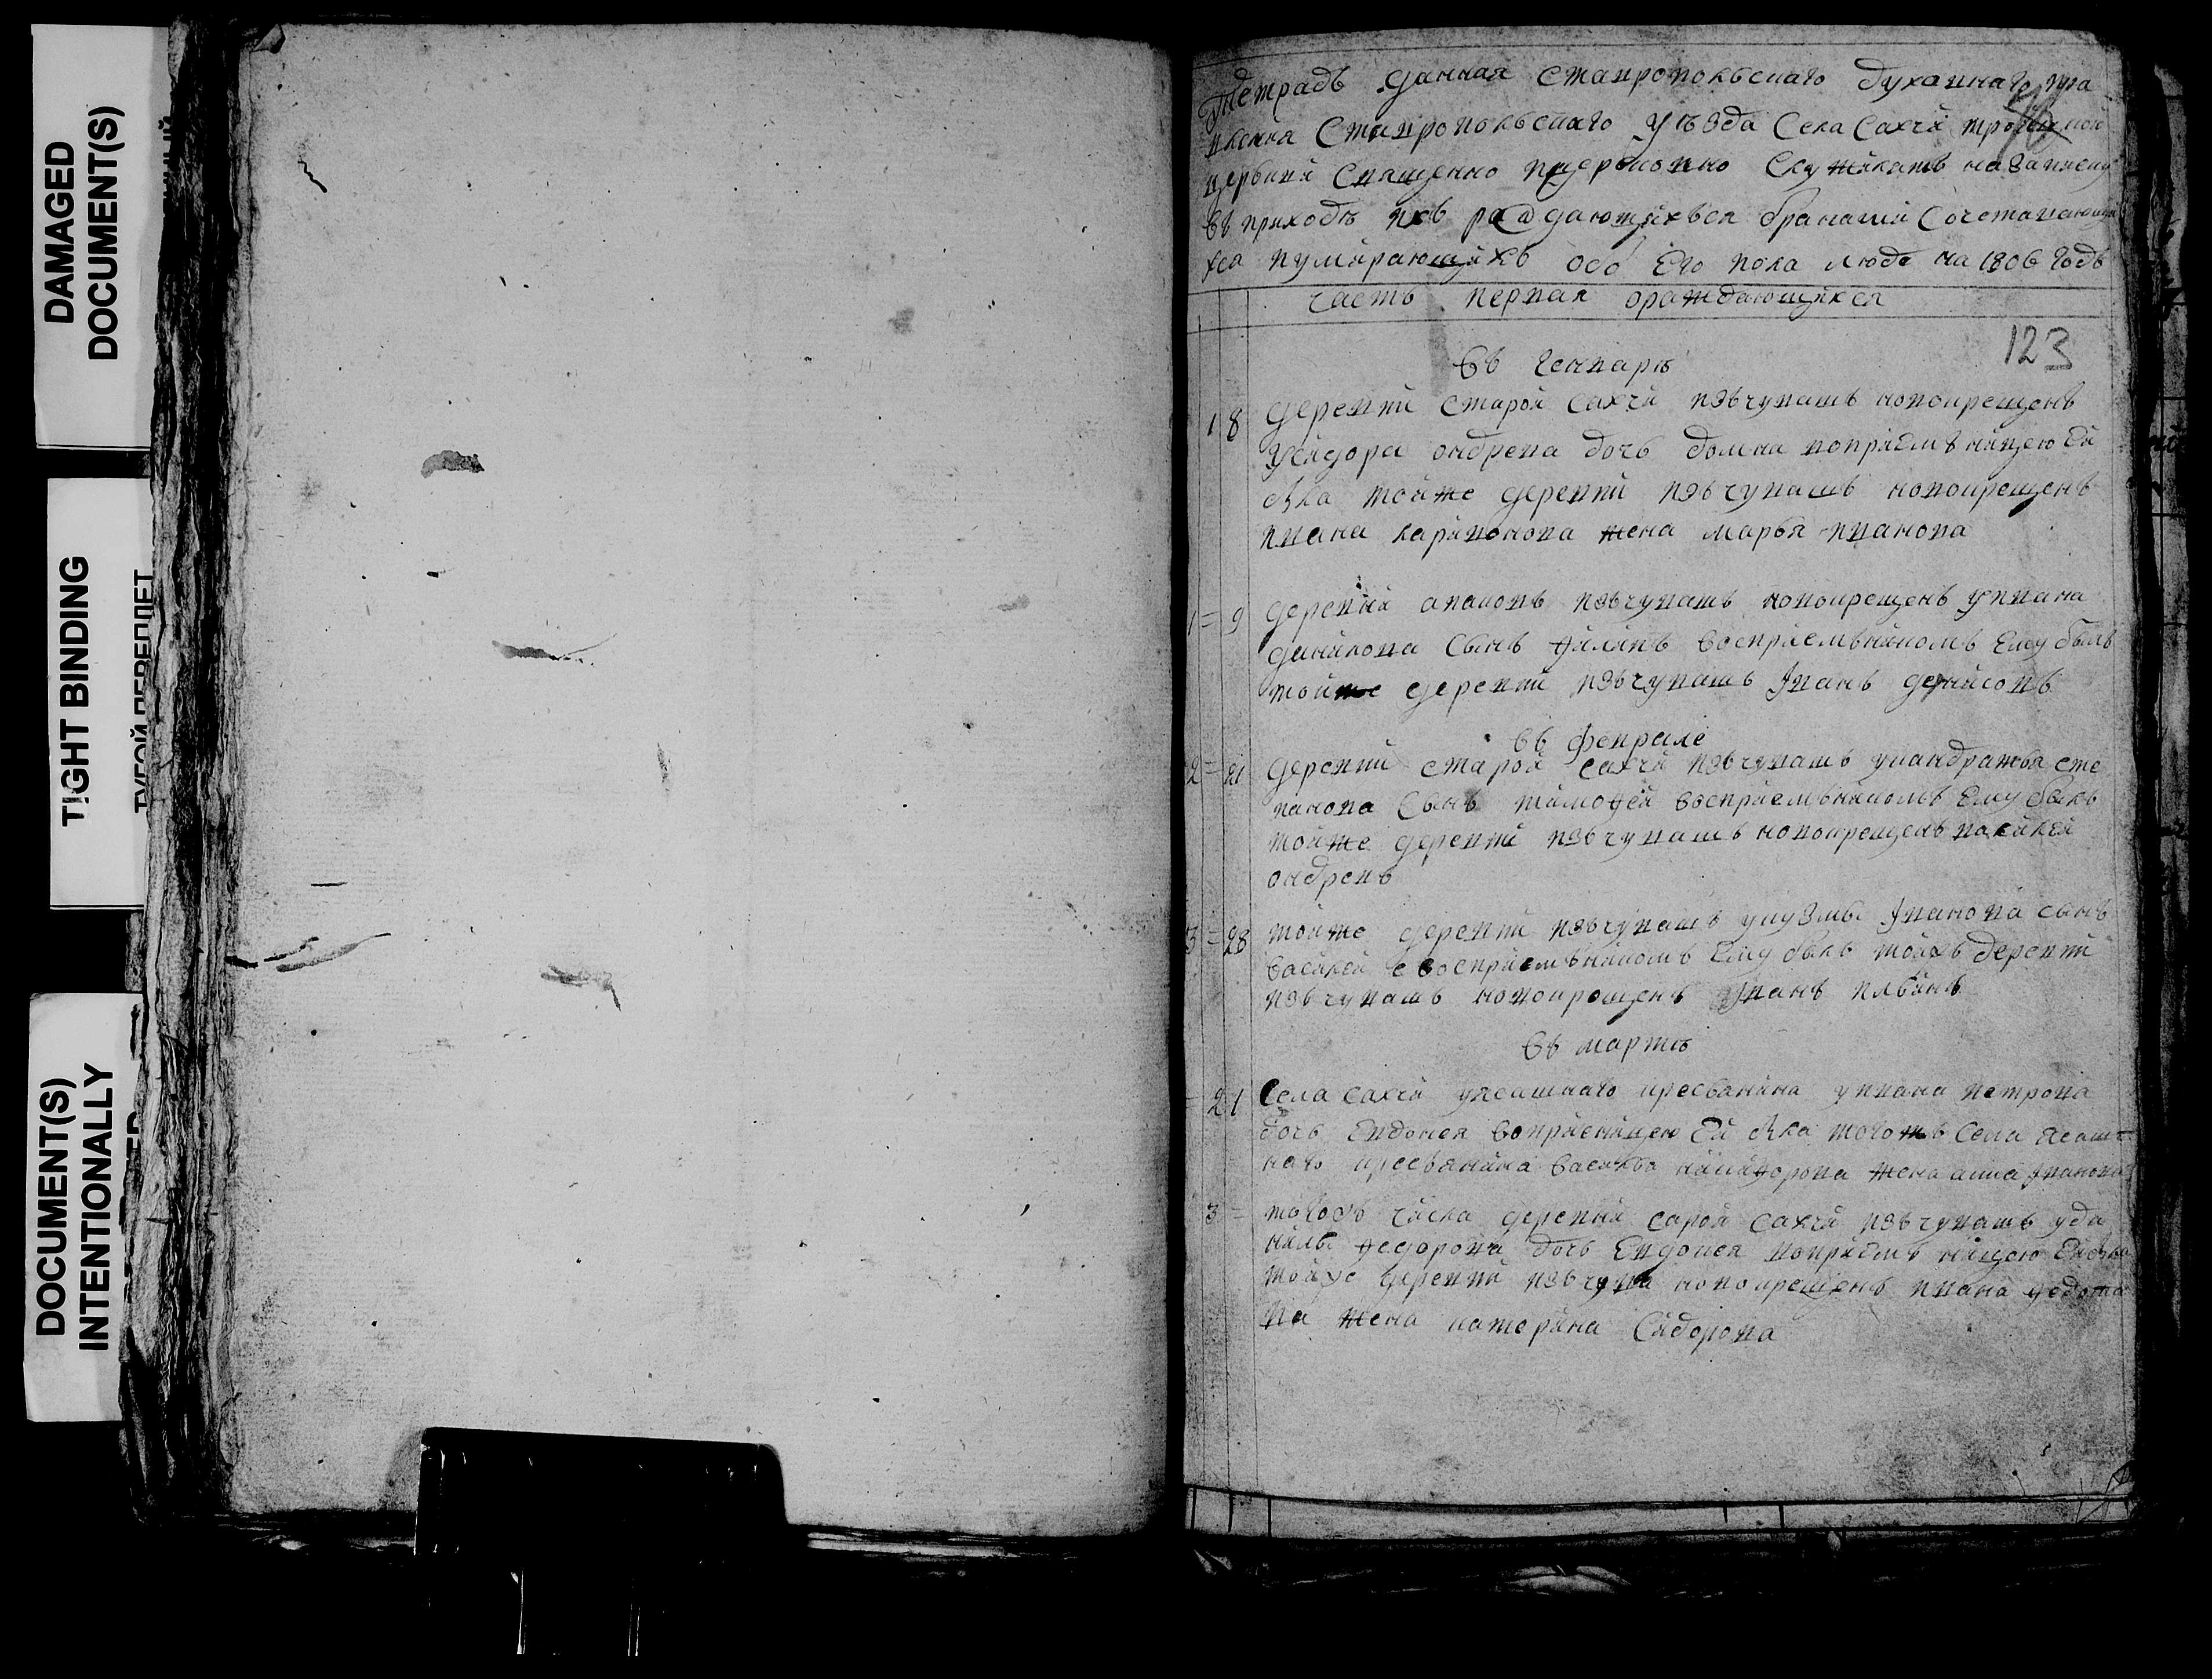 DAMAGED
DOCUMENT(S)
TIGHT BINDING
ТУГОЙ ПЕРЕПЛЕТ
DOCUMENT(S)
INTENTIONALLY
Тетрадь данная ставропольскаго духавнаго пра
вления Ставропольскаго уѣзда Села Сахчи троецкой
церьквй Священно пцерьковно служителямъ на записку
въ приходѣ ихъ раждающихься браками Сочетавающи
хся иумирающихъ обоего пола люде на 1806 годъ
часть первая ораждающихся
123
Въ Генварѣ
1 8 деревни старой сахчи изъчувашъ новокрещенъ
Усидора ондрева дочь домна воприемъницею ей
была тойже деревни изъчувашъ новокрещенъ
ивана ларивонова жена марья иванова
1 = 9 деревни авалонъ изъчувашъ новокрещенъ уивана
данилова Сынъ филипъ восприемъникомъ Ему былъ
тойже деревни изъчувашъ Иванъ денисовъ
въ феврале
2 = 21 деревни старой сахчи изъчувашъ укандратья сте
панова Сынъ тимофей восприемъникомъ Ему былъ
тойже деревни изъчувашъ новокрещенъ василей
ондревъ
3 = 28 тойже деревни изъчувашъ укузмы Иванова сынъ
василей восприемъникомъ Ему былъ тойжъ деревни
изъчувашъ новокрещенъ Иванъ ильинъ
въ мартѣ
= 21 Села сахчи уясашнаго кресьянина уивана петрова
дочь Евдокея воприемницею Ей была тогожъ Села ясаш=
наго кресьянина василья никифорова жена анна Иванова
3 = тогожъ числа деревни сарой сахчи изъчувашъ уда
нилы федорова дочь Евдокея воприемъницею Ей была
тойже деревни изъчува новокрещенъ ивана федото
ва жена катерина Сидорова